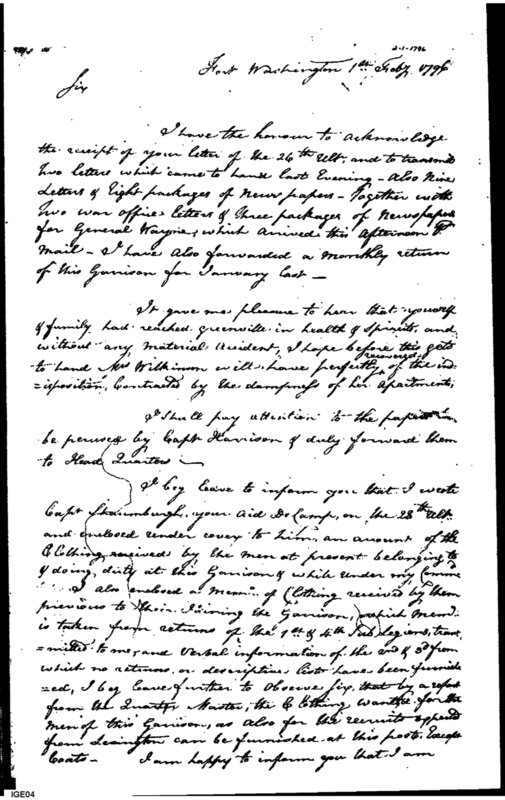 2-1-1796
Fort Washington 1st Feby 1796
Sir
I have the honour to acknowledge
the receipt of your letter of the 26th Ult. and to transmit
two letters which came to hand last Evening - Also Nine
Letters & Eight packages of News papers - Together with
Two war office letters & Three packages of Newspapers
for General Wayne, which arrived this Afternoon
Mail - I have also forwarded a monthly return
of this Garrison for January last -
It gave me pleasure to hear that yourself
& family had reached greenville in health & Spirits, and
without any material accident, I hope before this gets
recovered
to hand Mrs Wilkinson will have perfectly of the ind
=isposition, Contracted by the dampness of her Apartments,
I Shall pay attention to the papers
be perused by Capt Harrison & duly forward them
to Head Quarters
I beg leave to inform you that I wrote
Capt Shaumburgh, your Aid De Camp, on the 28th Ult.
and enclosed under cover to him, an amount of the
Clothing received by the men at present belonging to
& doing duty at this Garrison & while under my Comm
I also enclosed a Memo. of Clothing received by them
previous to their Joining the Garrison, which Memo.
is taken from returns of the 1st & 4th Sub Legions, trans
=mitted to me, and Verbal information of the 2nd & 3d from
which no returns or descriptive lists have been furnish
=ed, I beg leave further to Observe Sir, that by a report
from the Quarter Master, the Clothing wanted for the
men of this Garrison, as also for the recruits
from Lexington can be furnished at this post, Except
Coats - I am happy to inform you that I am
IGE04